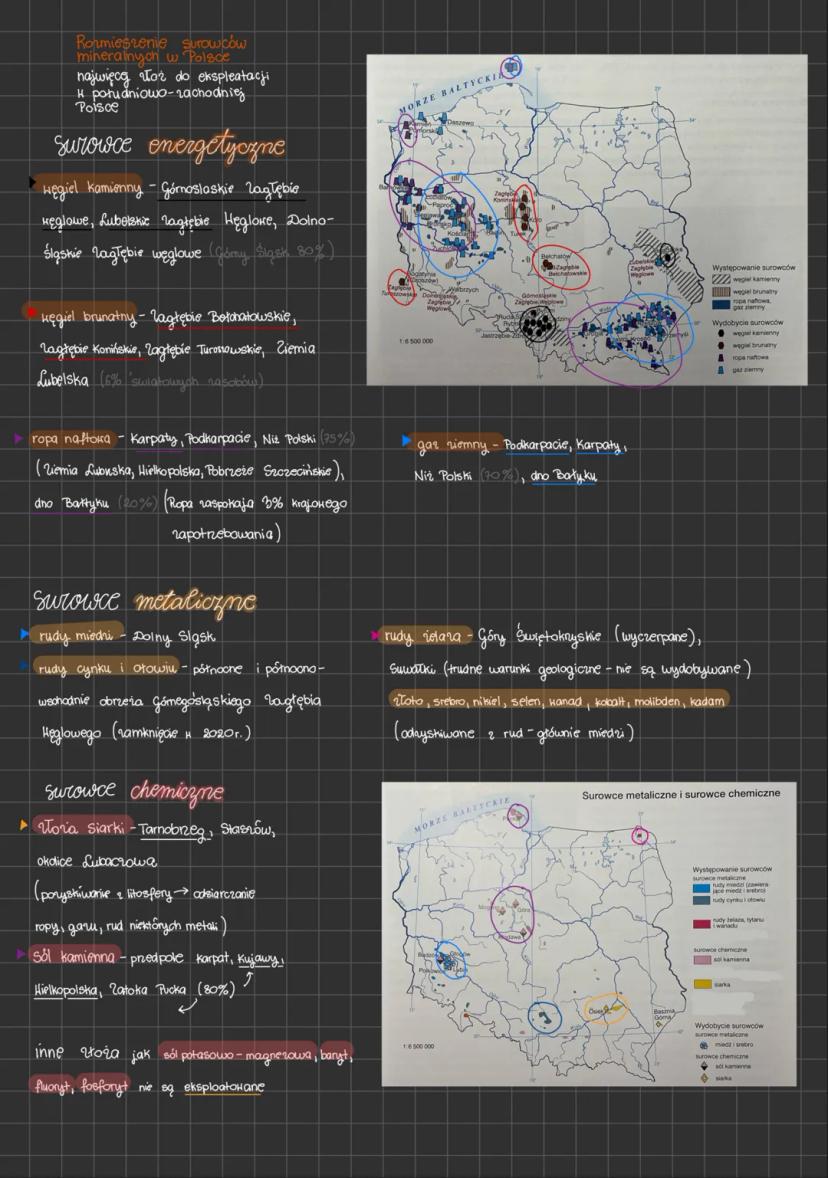 Rozmieszenie surowców
mineralnych w Polsce
najwięcej złoż do eksploatacji
w południowo-zachodniej
Polsce
surowce energetyczne
węgiel kamienny - Górnośląskie Zagłębie
węglowe, Lubelskie zagłębie Węglowe, Dolno-
śląskie zagłębie węglowe (Górny Śląsk 80%)
węgiel brunatny - Zagłębie Bełchatowskie,
Zagłębie Konińskie, Zagłębie Turoszowskie, Ziemia
Lubelska (6% światowych zasobów)
MORZE BAŁTYCKIE
Daszewo
Zagłębie
Konińskie
Turek
Bełchatów
Zagłębie
Bełchatowskie
Zagłębie
Turoszowskie
Wałbrzych
Dolnośląskie
Zagłębie
Węglowe
Górnośląskie
Zagłębie Węglowe
Lubelskie
Zagłębie
Węglowe
1:6 500 000
Występowanie surowców
węgiel kamienny
węgiel brunatny
ropa naftowa,
gaz ziemny
Wydobycie surowców
węgiel kamienny
węgiel brunatny
ropa naftowa
gaz ziemny
ropa naftowa - Karpaty, Podkarpacie, Niż Polski (75%)
(Ziemia Lubuska, Wielkopolska, Pobrzeże Szczecińskie),
dno Bałtyku (20%) (Ropa zaspokaja 3% krajowego
zapotrzebowania)
gaz ziemny - Podkarpacie, Karpaty,
Niż Polski (70%), dno Bałtyku
surowce metaliczne
rudy miedzi - Dolny Śląsk
rudy cynku i ołowiu - północne i północno-
wschodnie obrzeża Górnegośląskiego Zagłębia
Węglowego (zamknięcie w 2020r.)
rudy żelaza - Góry Świętokrzyskie (wyczerpane),
Suwałki (trudne warunki geologiczne - nie są wydobywane)
złoto, srebro, nikiel, selen, wanad, kobalt, molibden, kadam
(odzyskiwane z rud - głównie miedzi)
surowce chemiczne
złoża siarki - Tarnobrzeg, Staszów,
okolice Lubaczowa
(pozyskiwanie z litosfery → odsiarczanie
ropy, gazu, rud niektórych metali)
sól kamienna - przedpole karpat, Kujawy,
Wielkopolska, Zatoka Pucka (80%)
inne złoża jak sól potasowo-magnezowa, baryt,
fluoryt, fosforyt nie są eksploatowane
Surowce metaliczne i surowce chemiczne
MORZE BAŁTYCKIE
Góra
Kłodawa
Głogów
Lubin
Osiek
Basznia
Górna
1:6 500 000
Występowanie surowców
surowce metaliczne
rudy miedzi (zawiera-
jące miedź i srebro)
rudy cynku i ołowiu
rudy żelaza, tytanu
i wanadu
surowce chemiczne
sól kamienna
siarka
Wydobycie surowców
surowce metaliczne
miedź i srebro
surowce chemiczne
sól kamienna
siarka